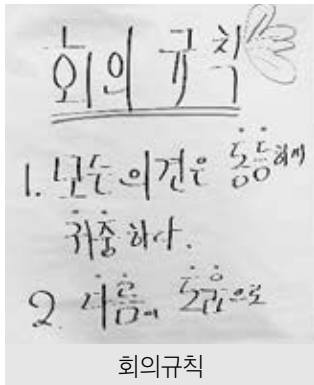 회의 규칙
1. 모든 의견은 동등하게
귀중하다.
2. 다름에 도움으로
회의규칙